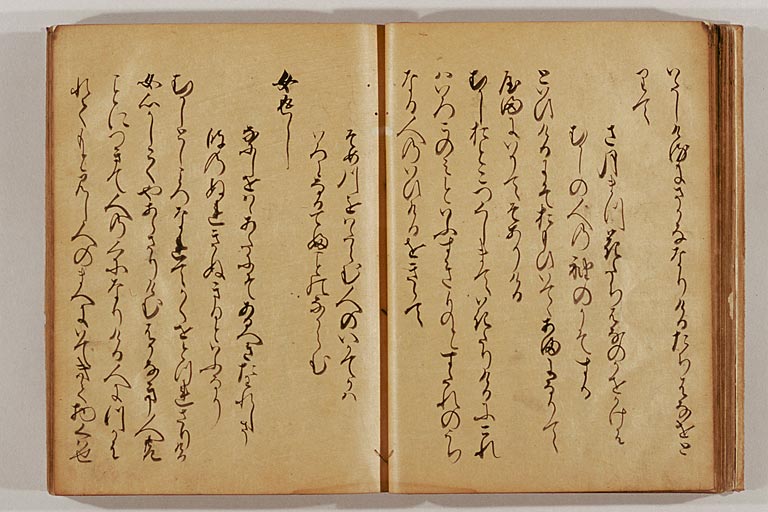 いたしけるにさかなゝりけるたちはなをと
りて
さ月まつ花たちはなのかをかけは
むかしの人の袖のかそする
といひけるにそおもひいてゝあまになりて
山にいりてそありける
むかしおとこつくしまていきたりけるにこれ
はいろこのみといふすきものとすたれのうち
なる人のいひけるをきゝて
そめ川をわたらむ人のいかてかは
いろになるてふことのなからむ
女返し
なにしおはゝあたにそあるへきたはれしま
浪のぬれきぬきるといふなり
むかしとしころをとつれさりける
女心かしこくやあらさりけむはかなき人の
ことにつきて人のくになりける人につかは
れてもと見し人のまへにいてきて物くはせ